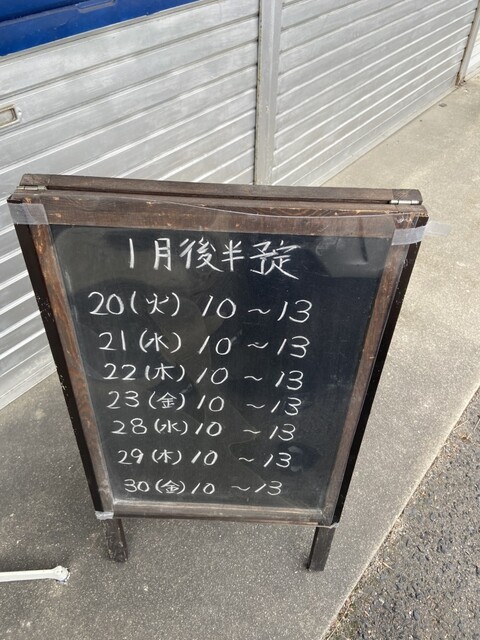 1月後半予定
20(火) 10~13
21(水) 10~13
22(木) 10~13
23(金) 10~13
28(水) 10~13
29(木) 10~13
30(金) 10~13